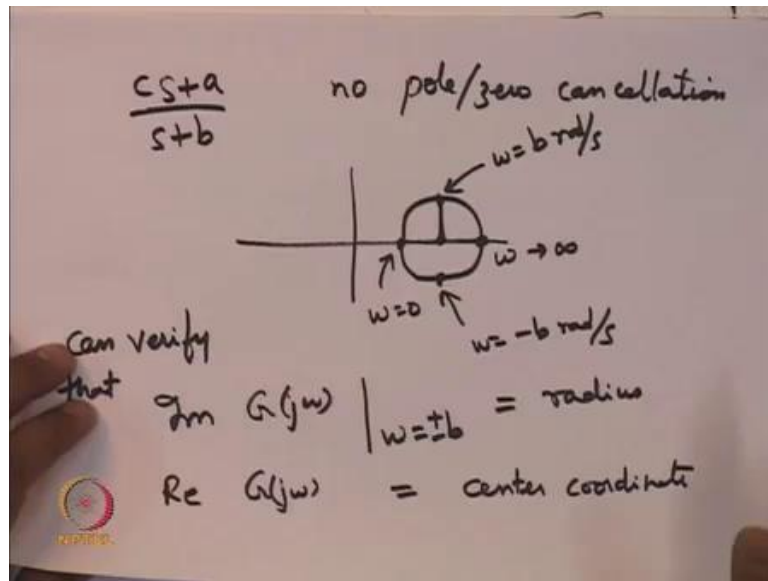 cs+a
s+b
no pole/zero cancellation
ω=b rad/s
ω→∞
ω=0
ω=-b rad/s
can verify
that Im G(jω) |ω=±b = radius
Re G(jω) = center coordinate
NPTEL